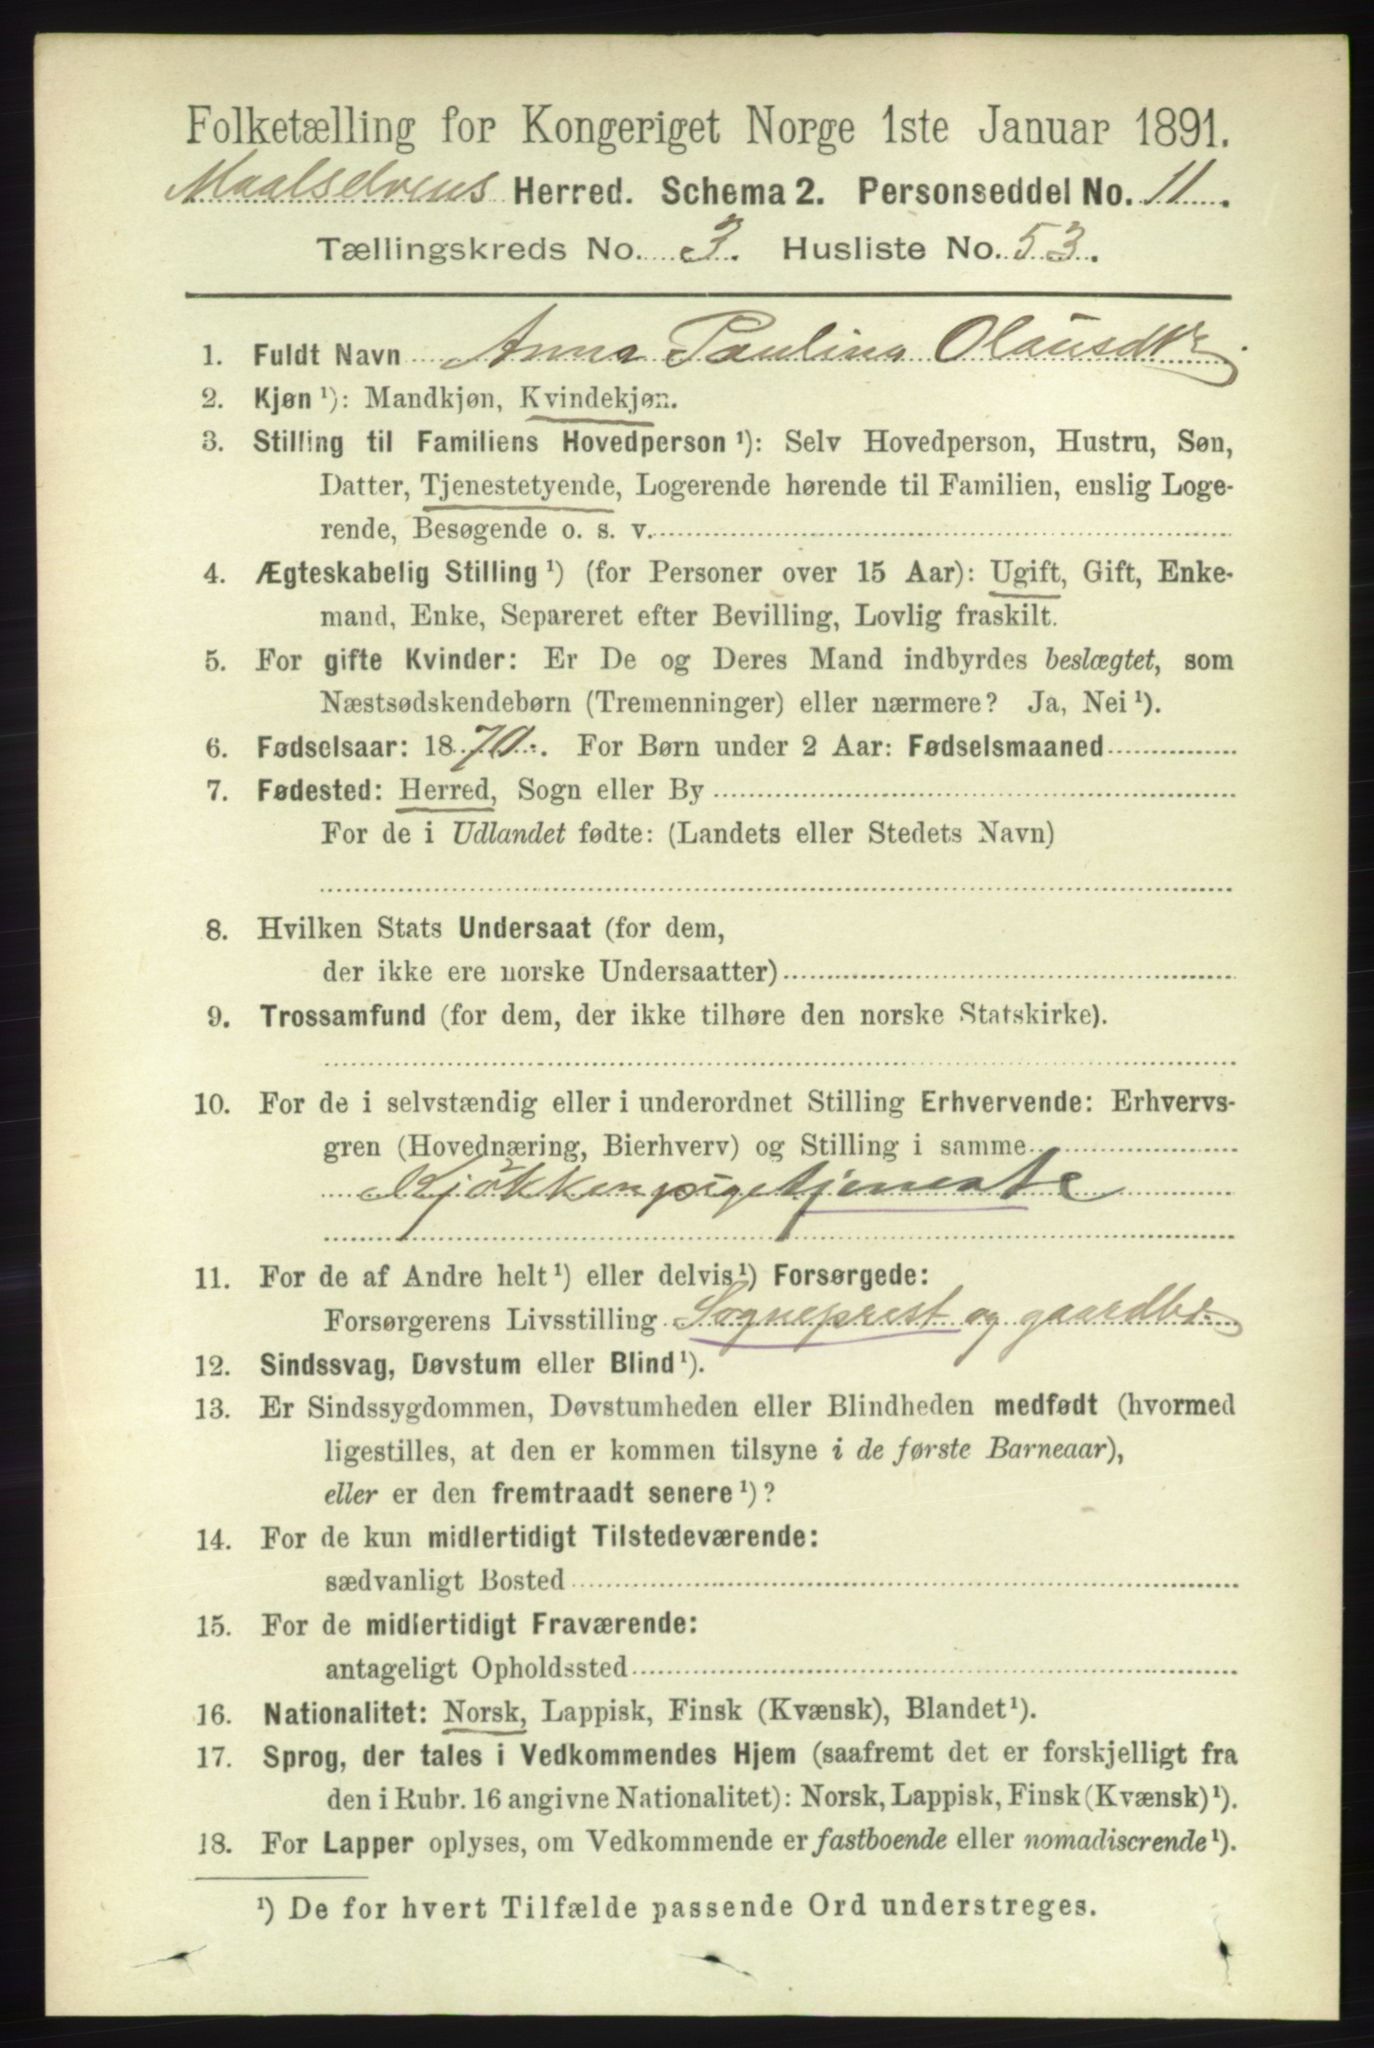 Folketælling for Kongeriget Norge 1ste Januar 1891.
Maalselvens Herred. Schema 2. Personseddel No. 11.
Tællingskreds No. 3. Husliste No. 53.
1. Fuldt Navn Anna Paulina Olausdtr.
2. Kjøn ¹): Mandkjøn, Kvindekjøn.
3. Stilling til Familiens Hovedperson ¹): Selv Hovedperson, Hustru, Søn,
Datter, Tjenestetyende, Logerende hørende til Familien, enslig Loge-
rende, Besøgende o. s. v.
4. Ægteskabelig Stilling ¹) (for Personer over 15 Aar): Ugift, Gift, Enke-
mand, Enke, Separeret efter Bevilling, Lovlig fraskilt.
5. For gifte Kvinder: Er De og Deres Mand indbyrdes beslægtet, som
Næstsødskendebørn (Tremenninger) eller nærmere? Ja, Nei ¹).
6. Fødselsaar: 1870. For Børn under 2 Aar: Fødselsmaaned
7. Fødested: Herred, Sogn eller By
For de i Udlandet fødte: (Landets eller Stedets Navn)
8. Hvilken Stats Undersaat (for dem,
der ikke ere norske Undersaatter)
9. Trossamfund (for dem, der ikke tilhøre den norske Statskirke).
10. For de i selvstændig eller i underordnet Stilling Erhvervende: Erhvervs-
gren (Hovednæring, Bierhverv) og Stilling i samme
Kjøkkenpigetjeneste
11. For de af Andre helt ¹) eller delvis ¹) Forsørgede:
Forsørgerens Livsstilling Sogneprest og gaardbr.
12. Sindssvag, Døvstum eller Blind ¹).
13. Er Sindssygdommen, Døvstumheden eller Blindheden medfødt (hvormed
ligestilles, at den er kommen tilsyne i de første Barneaar),
eller er den fremtraadt senere ¹)?
14. For de kun midlertidigt Tilstedeværende:
sædvanligt Bosted
15. For de midlertidigt Fraværende:
antageligt Opholdssted
16. Nationalitet: Norsk, Lappisk, Finsk (Kvænsk), Blandet ¹).
17. Sprog, der tales i Vedkommendes Hjem (saafremt det er forskjelligt fra
den i Rubr. 16 angivne Nationalitet): Norsk, Lappisk, Finsk (Kvænsk) ¹).
18. For Lapper oplyses, om Vedkommende er fastboende eller nomadiserende ¹).
¹) De for hvert Tilfælde passende Ord understreges.